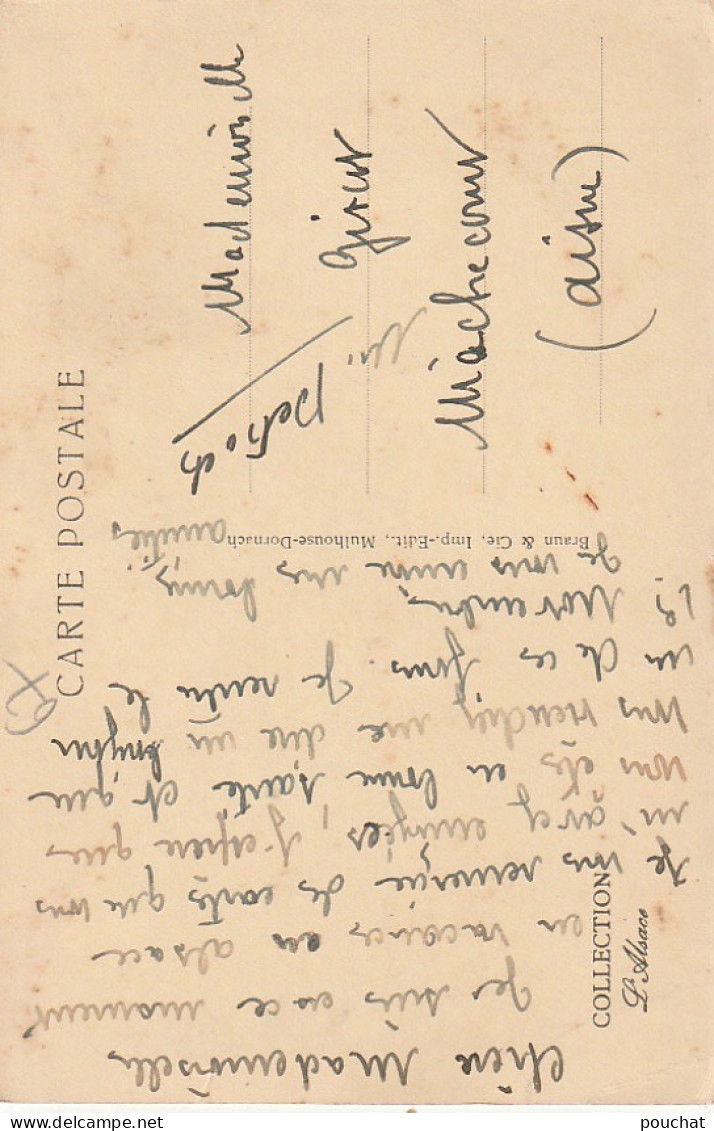 CARTE POSTALE
COLLECTION
L'Alsace
Braun & Cie, Imp.-Edit., Mulhouse-Dornach
Chère Mademoiselle
Je suis en ce moment
en vacances en alsace
Je vous remercie des cartes que vous
m'avez envoyées, J'espère que
vous êtes en bonne santé et que
vous viendrez me dire un bonjour
un de ces jours. Je rentre le
13 Novembre,
Je vous envoie mes bonnes
amitiés
Mademoiselle
Girout
Machecourt
(aisne)
pouchat